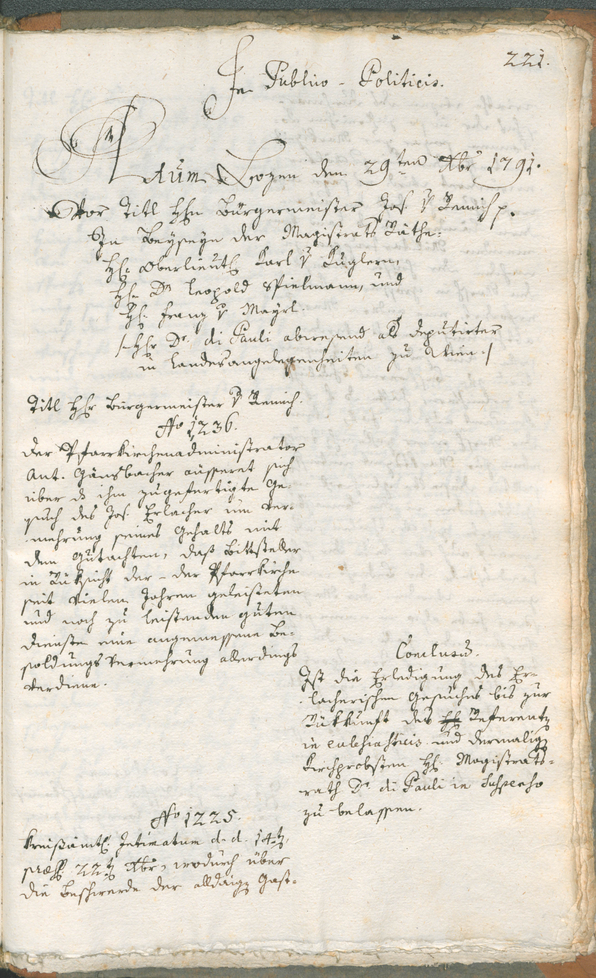 221.
In Publico-Politicis.
Actum Bozen den 29ten Xbr 1791.
Vor Titl Hhn Bürgermeister Jos. v Remich p.
In Beyseyn der Magistrats Räthe:
Hh. Oberlieut Karl v Kuglern,
Hh. Dr. Leopold Spielmann, und
Hh. Franz v Mayrl.
/: Hhr Dr. di Pauli abwesend als deputirter
in Landesangelegenheiten zu Wien :/
Titl Hhr Bürgermeister v Remich.
No 1236.
Der Pfarrkirchenadministrator
Ant. Gänsbacher äusseret sich
über ihm zugefertigte Ge-
such des Jos. Erlacher um Ver-
mehrung seines Gehalts mit
dem Gutachten, daß Bittsteller
in Rüksicht der - der Pfarrkirche
seit vielen Jahren geleisteten
und noch zu leistenden guten
Diensten eine angemessene Be-
soldungs Vermehrung allerdings
verdiene.
Conclusum.
Ist die Erledigung des Er-
lacherischen Gesuches bis zur
Rükkunft des Referenten
in ecclesiasticis und dermaligen
Kirchprobsten Hh. Magistrats-
rath Dr. di Pauli in Suspenso
zu belassen.
No 1225.
Kreisamtl. Intimatum d. d. 14t
präs. 22t Xbr, wodurch über
die Beschwerde der alldaigen Gast-